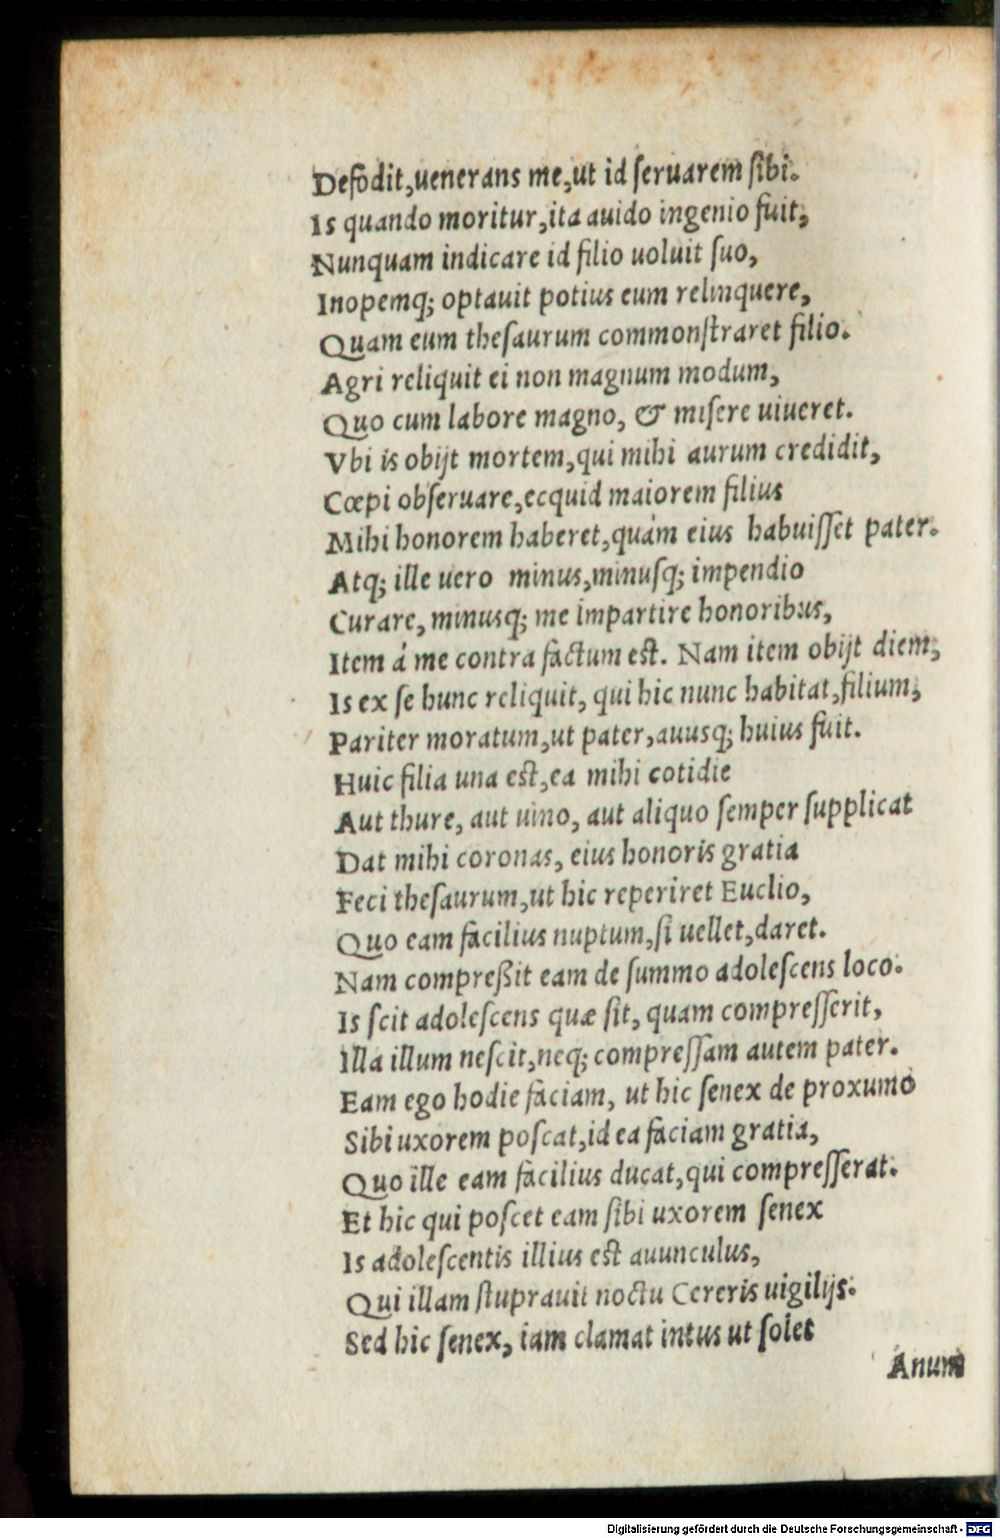 Defodit,uenerans me,ut id ſeruarem ſibi.
Is quando moritur,ita auido ingenio fuit,
Nunquam indicare id filio uoluit ſuo,
Inopemq; optauit potius eum relinquere,
Quam eum theſaurum commonſtraret filio.
Agri reliquit ei non magnum modum,
Quo cum labore magno, & miſere uiueret.
Vbi is obijt mortem,qui mihi aurum credidit,
Cœpi obſeruare,ecquid maiorem filius
Mihi honorem haberet,quàm eius habuiſſet pater.
Atq; ille uero minus,minuſq; impendio
Curare, minusq; me impartire honoribus,
Item á me contra factum eſt. Nam item obijt diem,
Is ex ſe hunc reliquit, qui hic nunc habitat,filium,
Pariter moratum,ut pater,auusq; huius fuit.
Huic filia una eſt,ea mihi cotidie
Aut thure, aut uino, aut aliquo ſemper ſupplicat
Dat mihi coronas, eius honoris gratia
Feci theſaurum,ut hic reperiret Euclio,
Quo eam facilius nuptum,ſi uellet,daret.
Nam compreßit eam de ſummo adoleſcens loco.
Is ſcit adoleſcens quæ ſit, quam compreſſerit,
Illa illum neſcit,neq; compreſſam autem pater.
Eam ego hodie faciam, ut hic ſenex de proxumo
Sibi uxorem poſcat,id ea faciam gratia,
Quo ille eam facilius ducat,qui compreſſerat.
Et hic qui poſcet eam ſibi uxorem ſenex
Is adoleſcentis illius eſt auunculus,
Qui illam ſtuprauit noctu Cereris uigilijs.
Sed hic ſenex, iam clamat intus ut ſolet
Anum
Digitalisierung gefördert durch die Deutsche Forschungsgemeinschaft - DFG